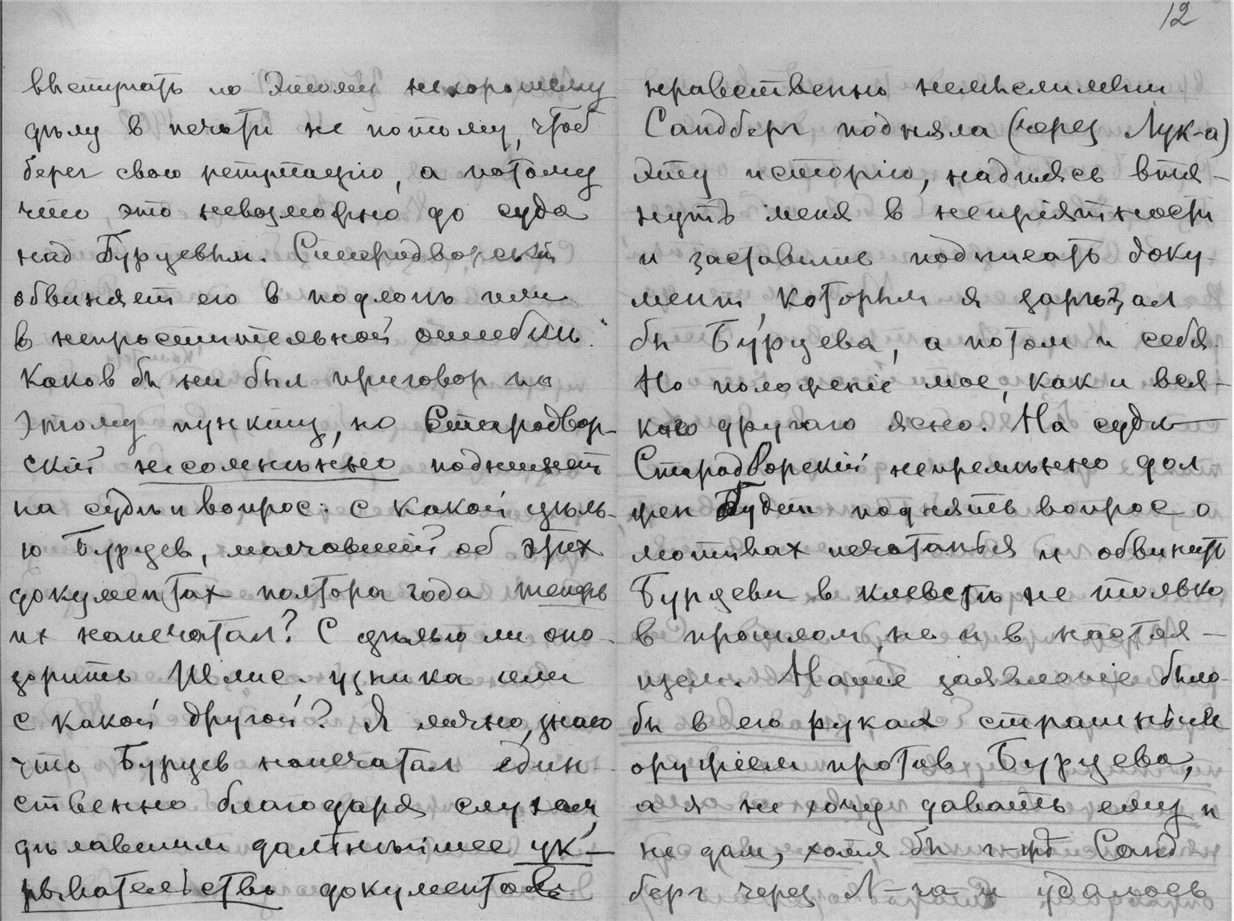 12
выступать по этому нехорошему
дѣлу в печати не потому, чтоб
берег свою репутацію, а потому
что это невозможно до суда
над Бурцевым. Стародворскій
обвиняет его в подлогѣ или
в непростительной ошибкѣ.
Каков бы ни был приговор по
этому пункту, но Стародвор-
скій несомнѣнно поднимет
на судѣ и вопрос: с какой цѣль-
ю Бурцев, молчавшій об этих
документах полтора года теперь
их напечатал? С цѣлью ли опо-
зорить Шлис. узника или
с какой другой? Я лично знаю
что Бурцев напечатал един-
ственно благодаря случаю,
дѣлавшим дальнѣйшее ук-
рывательство документов
нравственно немыслимым.
Сандберг подняла (через Лук-а)
эту исторію, надѣясь втя-
нуть меня в непріятности
и заставив подписать доку-
мент, которым я зарѣзал
бы Бурцева, а потом и себя.
Но положеніе мое, как и вся-
каго другаго ясно. На судѣ
Стародворскій непремѣнно дол
жен будет поднять вопрос о
мотивах печатанья и обвинить
Бурцева в клеветѣ не только
в прошлом, но и в настоя-
щем. Наше заявленіе было
бы в его руках страшным
оружіем против Бурцева,
а я не хочу давать ему и
не дам, хотя бы г-жѣ Санд
берг через Л-ча и удалось